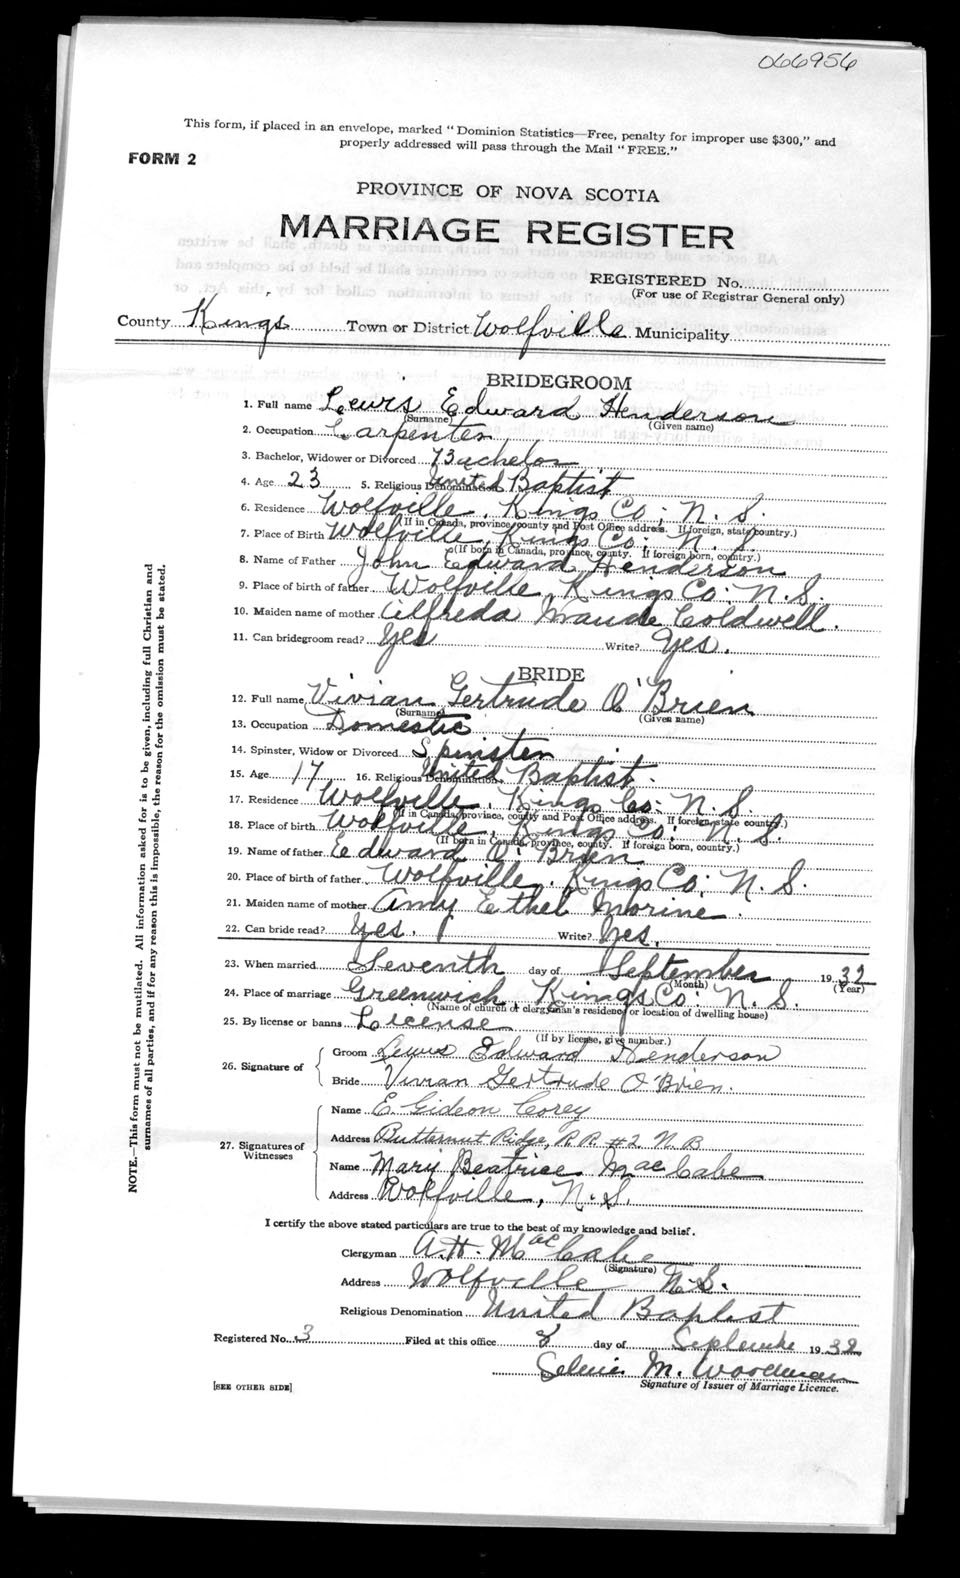 066956
This form, if placed in an envelope, marked "Dominion Statistics—Free, penalty for improper use $300," and
properly addressed will pass through the Mail "FREE."
FORM 2
PROVINCE OF NOVA SCOTIA
MARRIAGE REGISTER
REGISTERED No.
(For use of Registrar General only)
County Kings Town or District Wolfville Municipality
BRIDEGROOM
1. Full name Lewis Edward Henderson
(Surname) (Given name)
2. Occupation Carpenter
3. Bachelor, Widower or Divorced Bachelor
4. Age 23 5. Religious Denomination United Baptist
6. Residence Wolfville, Kings Co; N.S.
(If in Canada, province, county and Post Office address. If foreign, state country.)
7. Place of Birth Wolfville, Kings Co: N.S.
(If born in Canada, province, county. If foreign born, country.)
8. Name of Father John Edward Henderson
9. Place of birth of father Wolfville, Kings Co: N.S.
10. Maiden name of mother Alfreda Maude Coldwell.
11. Can bridegroom read? Yes Write? Yes.
BRIDE
12. Full name Vivian Gertrude O'Brien
(Surname) (Given name)
13. Occupation Domestic
14. Spinster, Widow or Divorced Spinster
15. Age 17 16. Religious Denomination United Baptist.
17. Residence Wolfville, Kings Co: N.S.
(If in Canada, province, county and Post Office address. If foreign, state country.)
18. Place of birth Wolfville, Kings Co; N.S.
(If born in Canada, province, county. If foreign born, country.)
19. Name of father Edward O'Brien
20. Place of birth of father Wolfville, Kings Co; N.S.
21. Maiden name of mother Amy Ethel Morine.
22. Can bride read? Yes. Write? Yes.
23. When married Seventh day of September 1932
(Month) (Year)
24. Place of marriage Greenwich, Kings Co: N.S.
(Name of church or clergyman's residence or location of dwelling house)
25. By license or banns License
(If by license, give number.)
26. Signature of
Groom Lewis Edward Henderson
Bride Vivian Gertrude O'Brien.
27. Signatures of Witnesses
Name E. Gideon Corey
Address Butternut Ridge, R.R. #2 N.B
Name Mary Beatrice MacCabe
Address Wolfville, N.S.
I certify the above stated particulars are true to the best of my knowledge and belief.
Clergyman A.H. MacCabe
(Signature)
Address Wolfville N.S.
Religious Denomination United Baptist
Registered No. 3 Filed at this office 8 day of September 1932
M. Woodman
[SEE OTHER SIDE] Signature of Issuer of Marriage Licence.
NOTE.—This form must not be mutilated. All information asked for is to be given, including full Christian and
surnames of all parties, and if for any reason this is impossible, the reason for the omission must be stated.